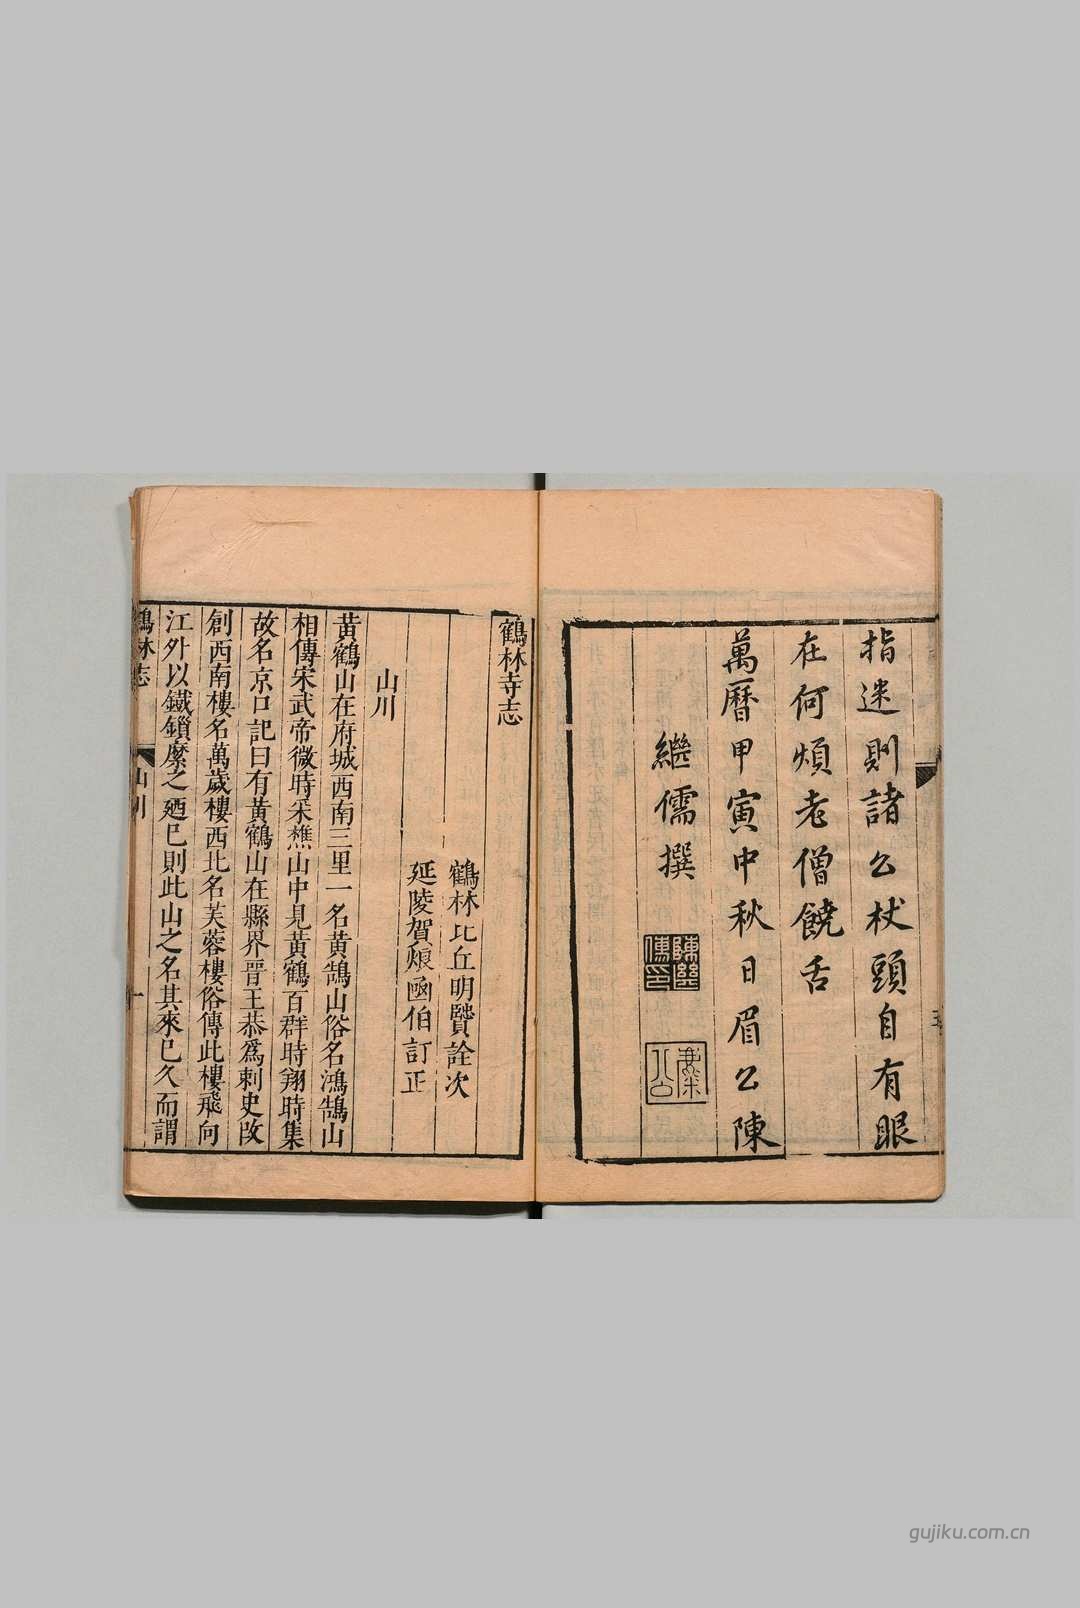 指迷則諸公杖頭自有眼
在何煩老僧饒舌
萬曆甲寅中秋日眉公陳
繼儒撰
鶴林寺志
鶴林比丘明賢詮次
延陵賀烺函伯訂正
山川
黃鶴山在府城西南三里一名黃鵠山俗名鴻鵠山
相傳宋武帝微時采樵山中見黃鶴百群時翔時集
故名京口記曰有黃鶴山在縣界晉王恭爲刺史改
創西南樓名萬歲樓西北名芙蓉樓俗傳此樓飛向
江外以鐵鎖縻之廼已則此山之名其來已久而謂
鶴林志
山川
一
gujiku.com.cn